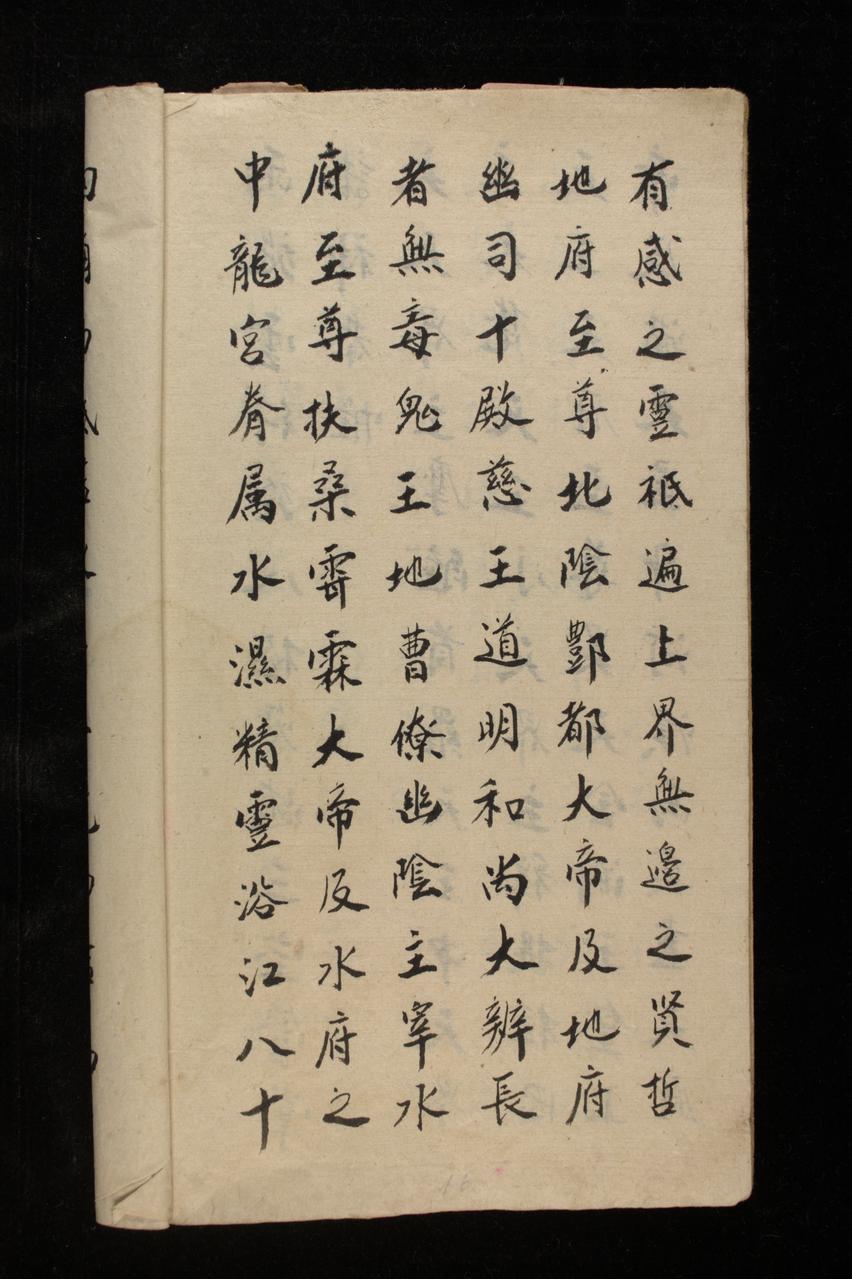 有感之靈祗遍上界無邉之賢哲
地府至尊北陰酆都大帝及地府
幽司十殿慈王道明和尚大辦長
者無毒鬼王地曹僚幽陰主宰水
府至尊扶桑霄霖大帝及水府之
中龍宮眷属水濕精靈浴江八十